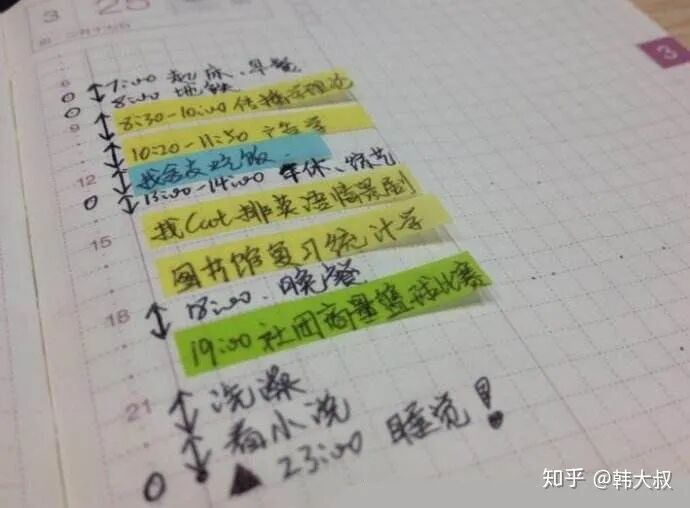 3 25
二月十六
3
6
7:00 起床、早餐
8:00 地铁
8:30-10:00 传播学理论
9
10:20-11:50 广告学
找舍友吃饭
12
13:00-14:00 午休、
找Cat排英语情景剧
15
图书馆复习统计学
18:00、晚餐
18
19:00 社团商量篮球比赛
21
洗澡
看小说
23:00 睡觉!
知乎 @韩大叔